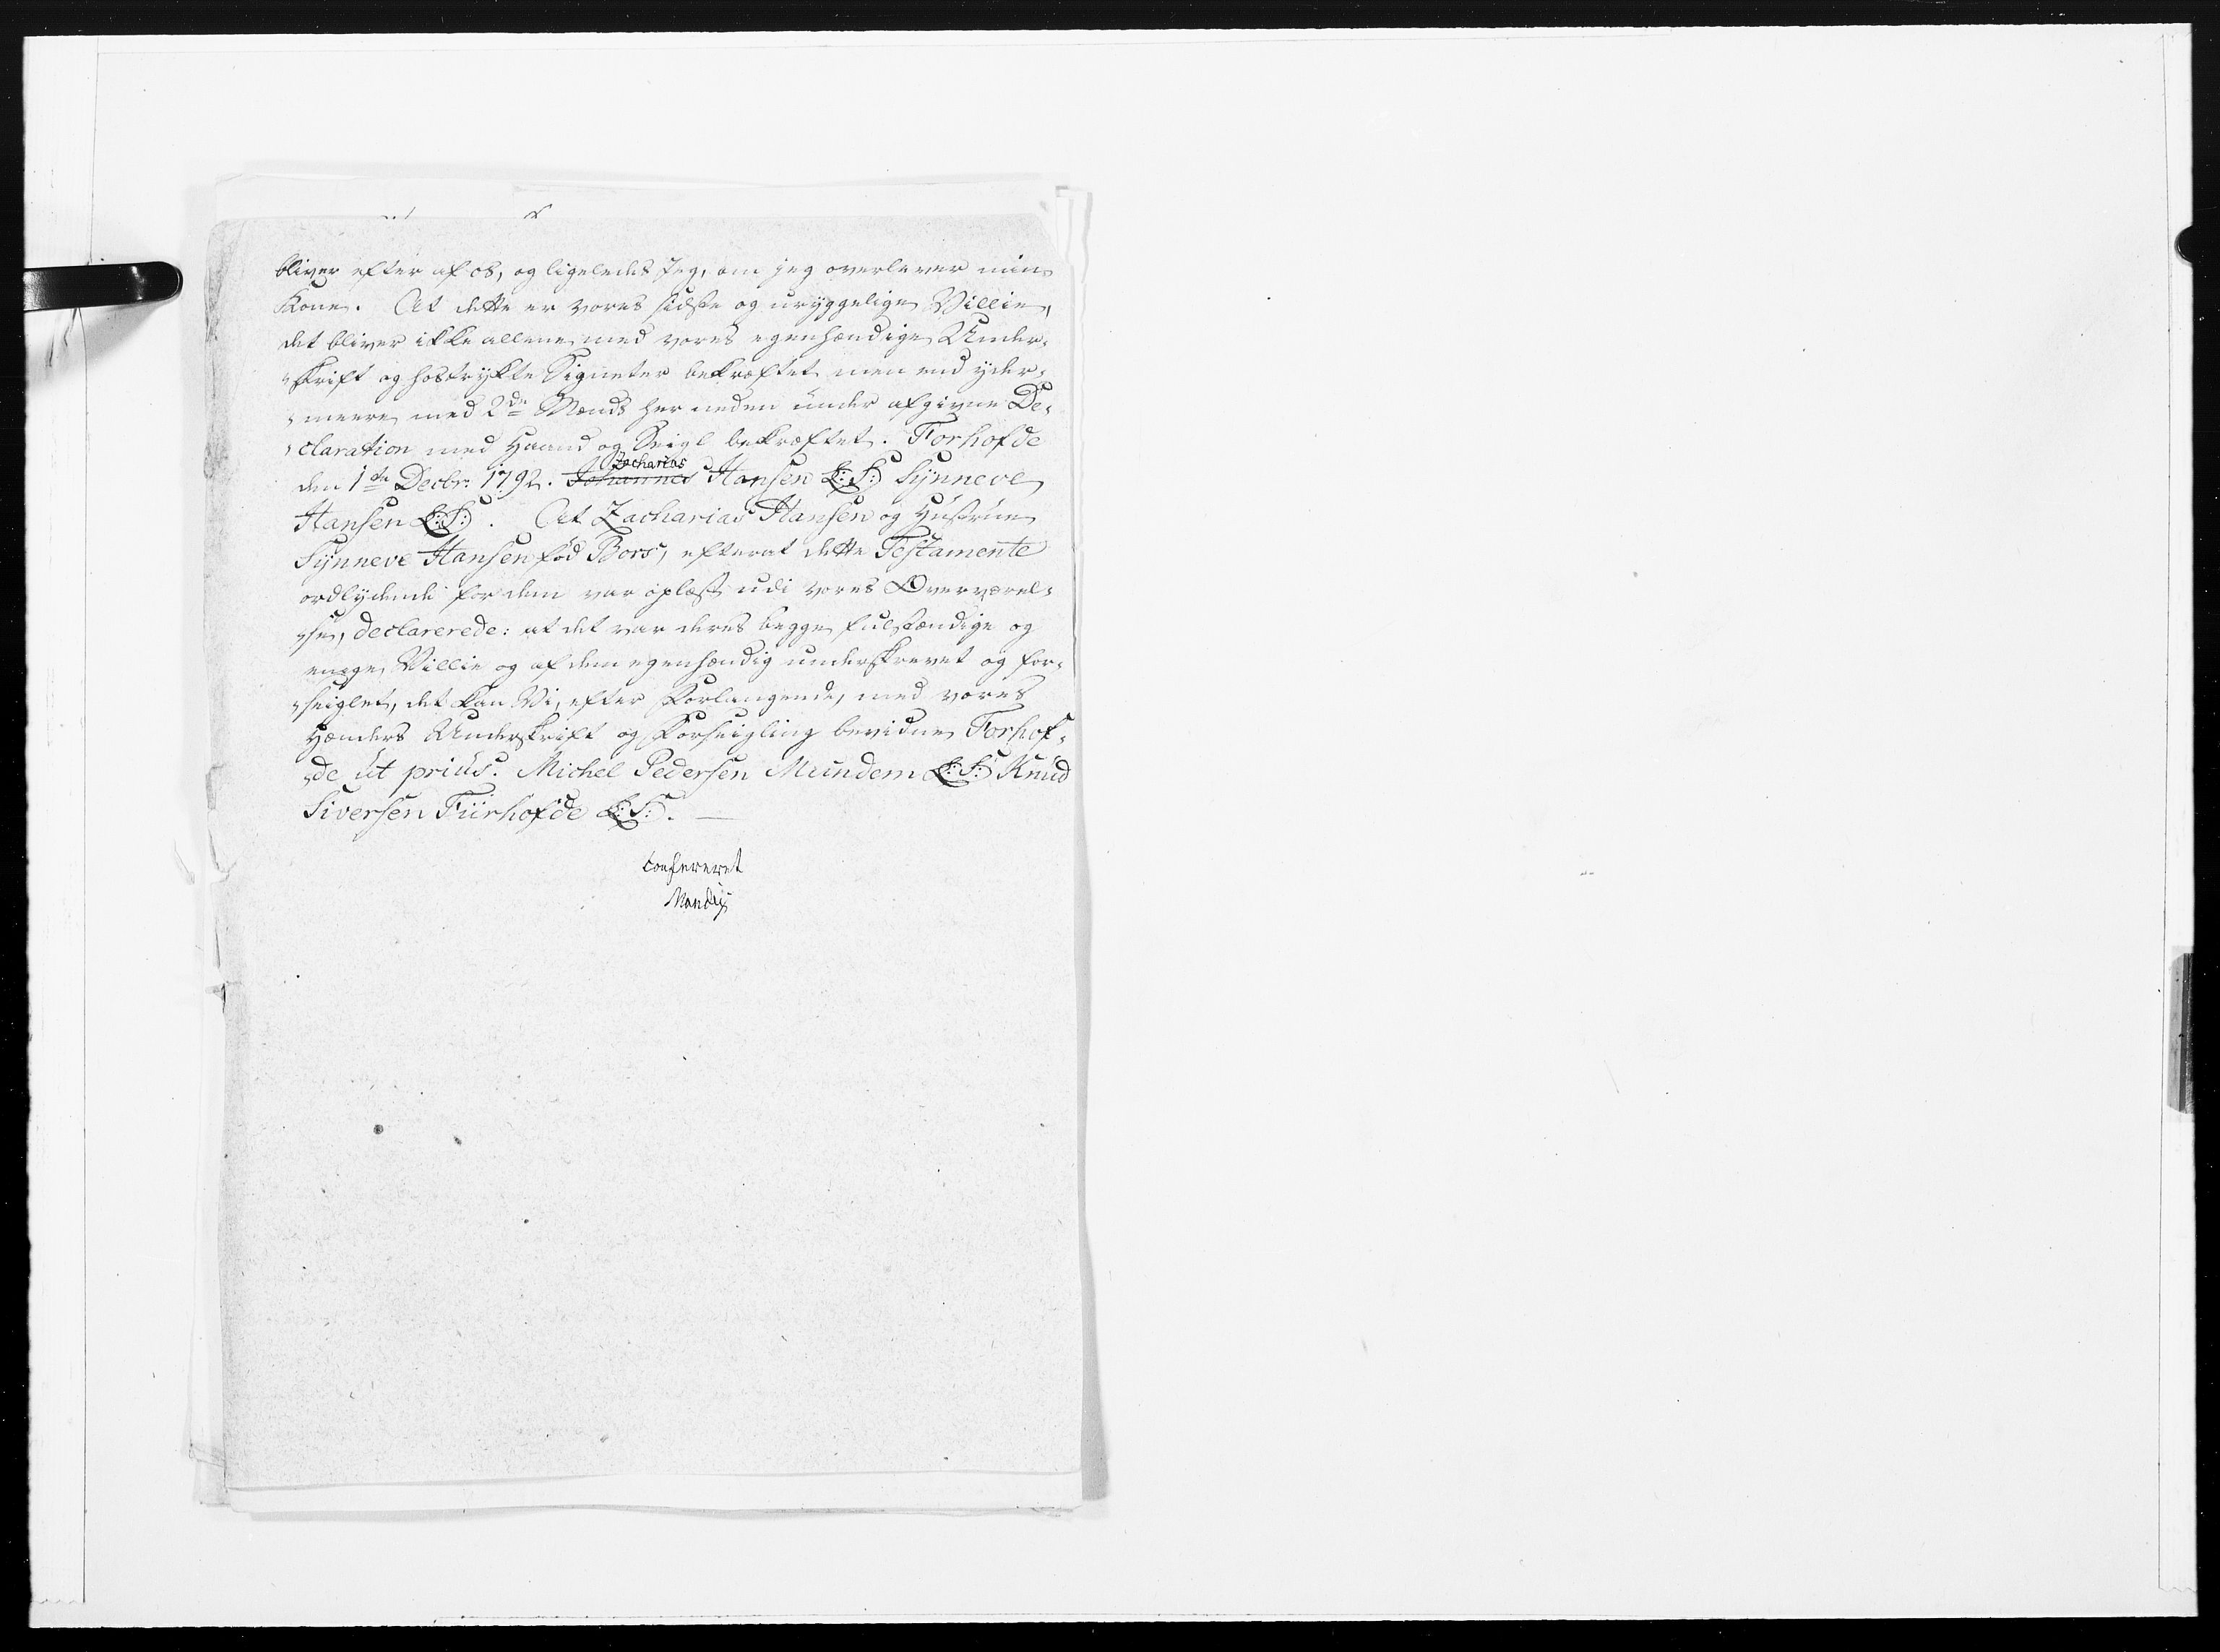 bliver efter af os, og ligeledes Jeg, om jeg overlever min
Kone. At dette er vores sidste og uryggelige Villie,
det bliver ikke allene med vores egenhændige Under-
-skrift og hostrykte Signeter bekræftet men end yder-
-meere med 2de Mænds her neden under afgivne De-
-claration med Haand og Seigl bekræftet. Forhofde
den 1ste Decbr: 1792. Johannes Zacharias Hansen L:S: Synneve
Hansen L:S:. At Zacharias Hansen og Hustrue
Synneve Hansen fød Bors, efterat dette Testamente
ordlydende for dem var oplæst udi vores Overværel-
-se, declarerede: at det var deres begges fulstændige og
enige Villie og af dem egenhændig underskrevet og for-
-seiglet, det kan Vi, efter Forlangende, med vores
Hænders Underskrift og Forseigling bevidne Forhof-
-de ut prius. Michel Pedersen Mundem L:S: Knud
Siversen Fürhofde L:S:. —
Confereret